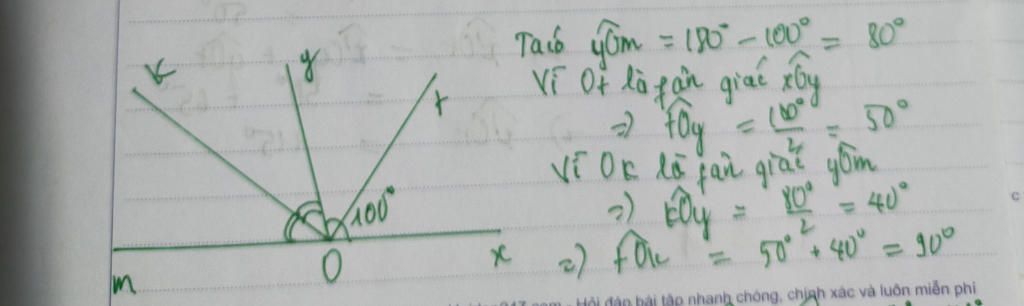 Ta có yOm = 180° - 100° = 80°
Vì Ot là fân giác xOy
=> tOy = 100°/2 = 50°
Vì OK là fân giác yOm
=> kOy = 80°/2 = 40°
=> tOk = 50° + 40° = 90°
K
y
t
100°
m
O
x
c
Hỏi đáp bài tập nhanh chóng, chính xác và luôn miễn phí